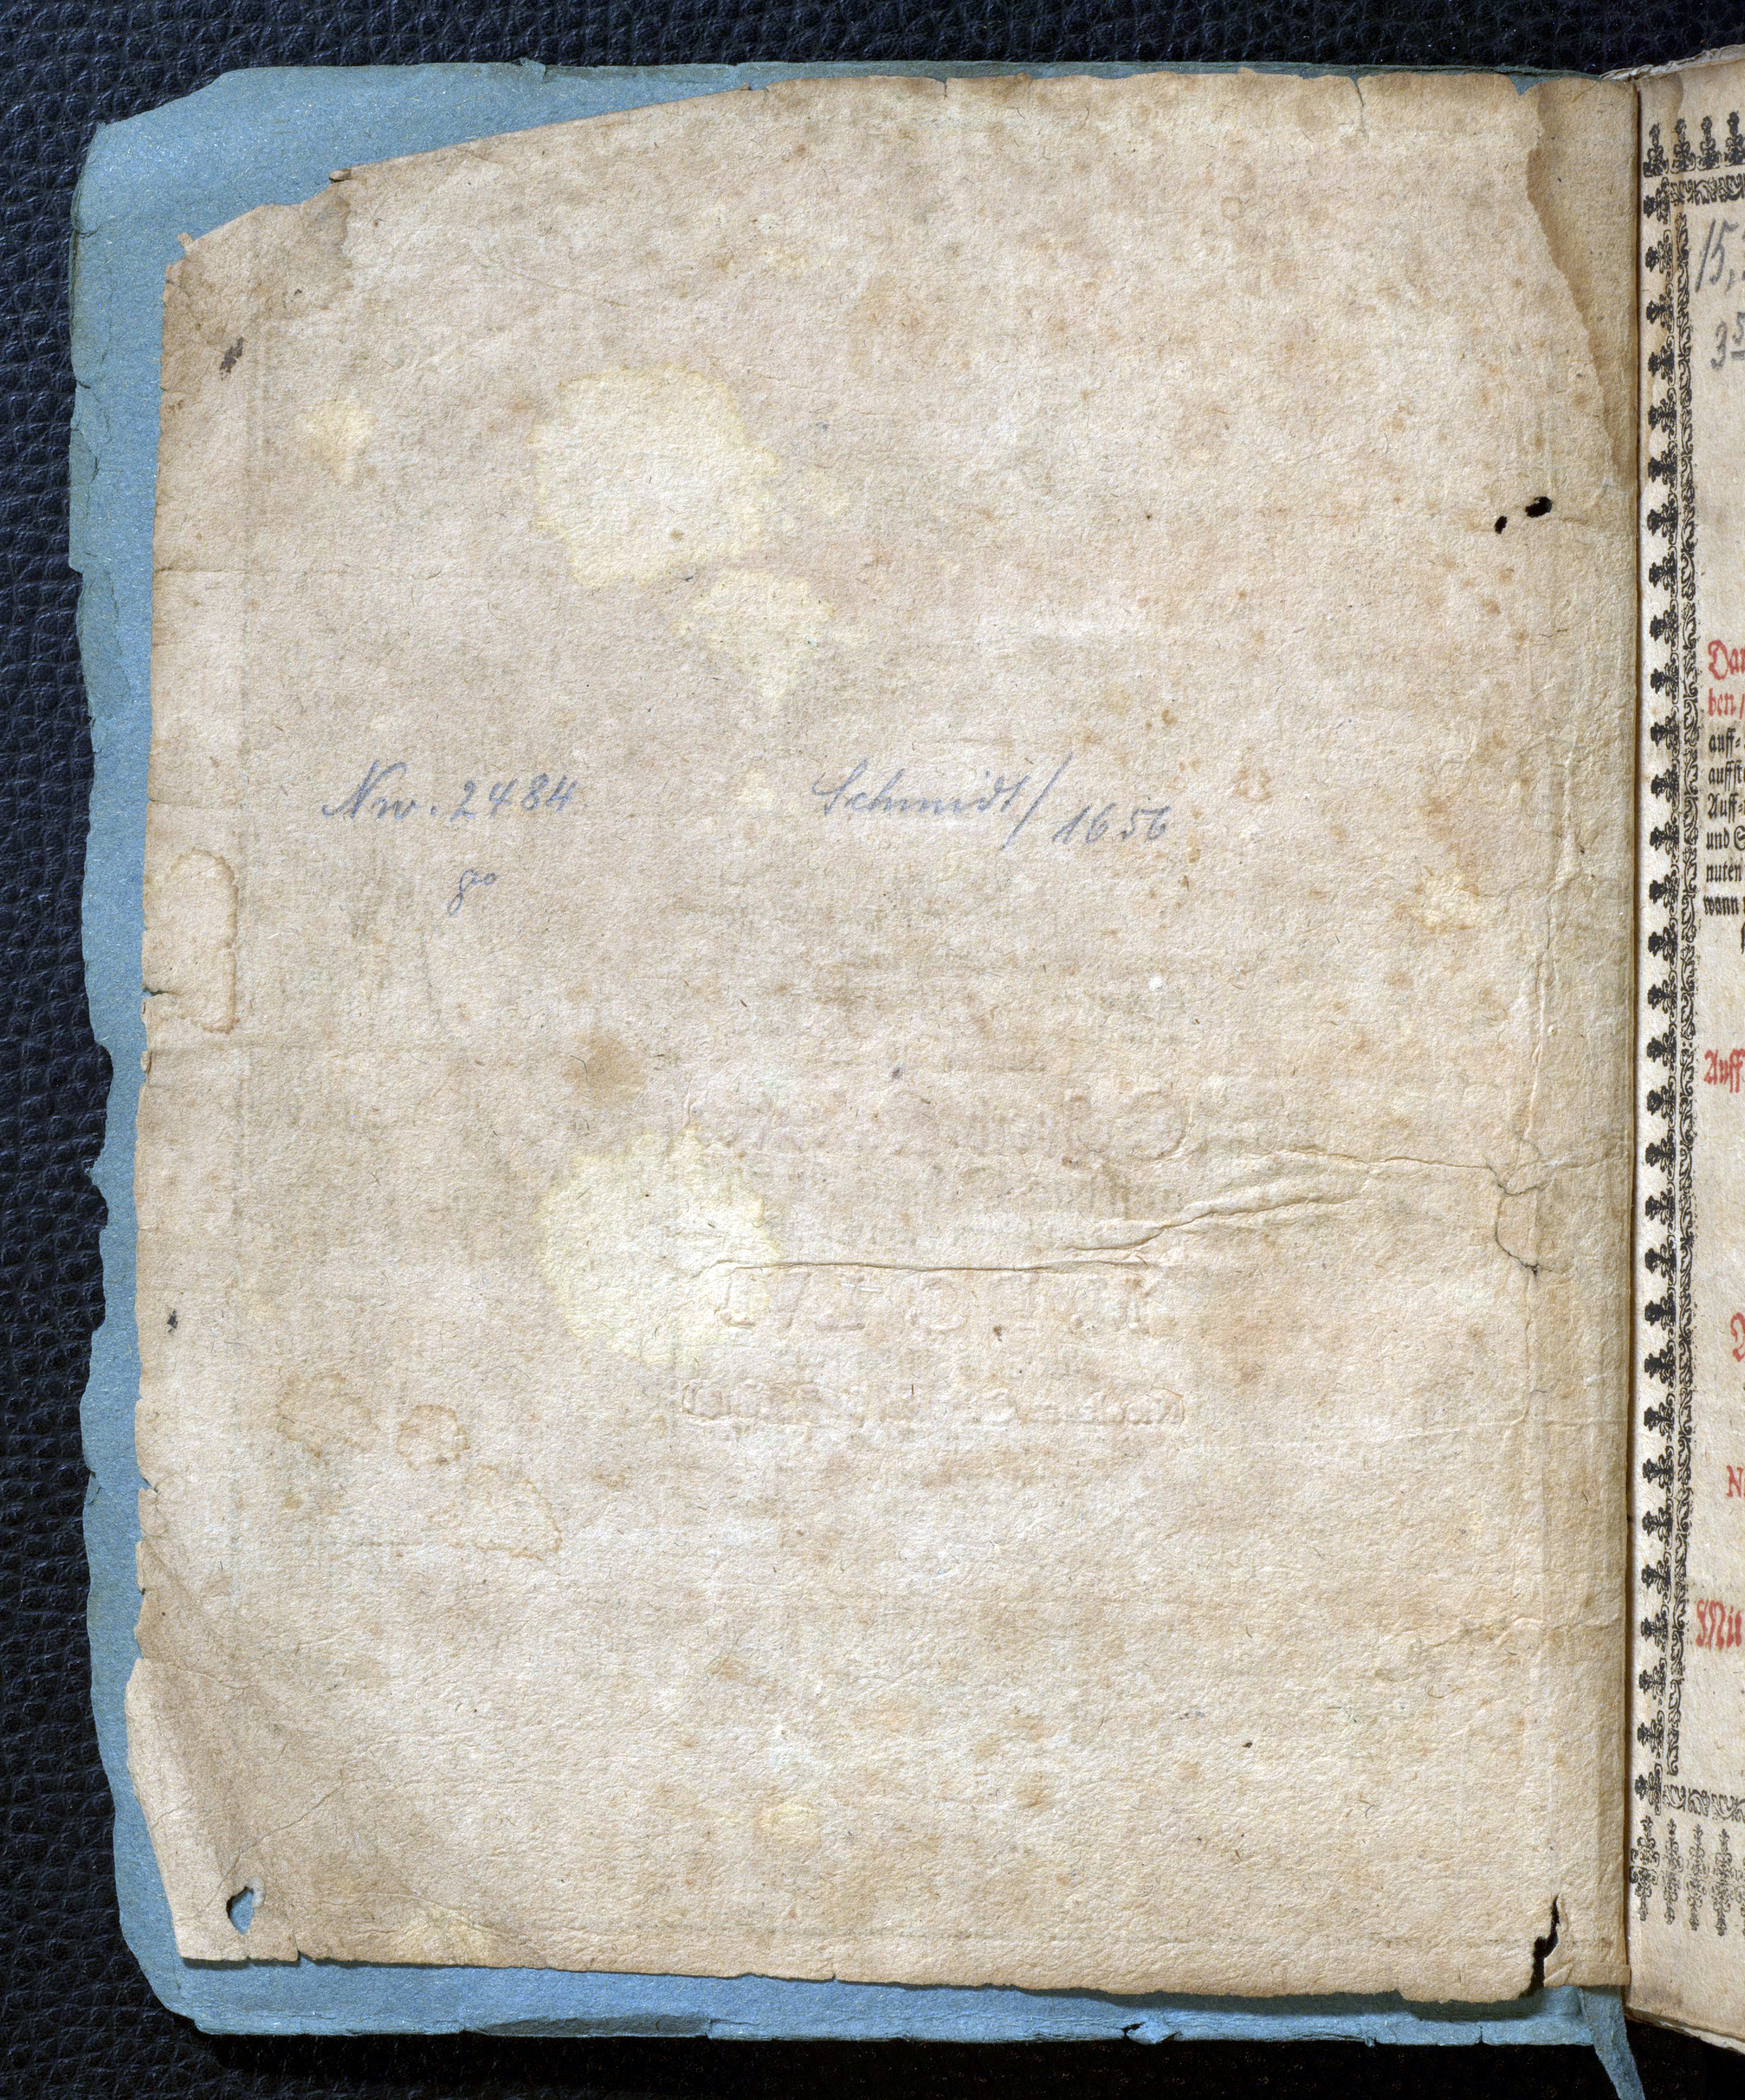 Nro. 2484 Schmidt/1656
go
15,
35
Dar
ben/
auff-
auffst
Auff-
und S
nuten
wann
Auff
N
Mit